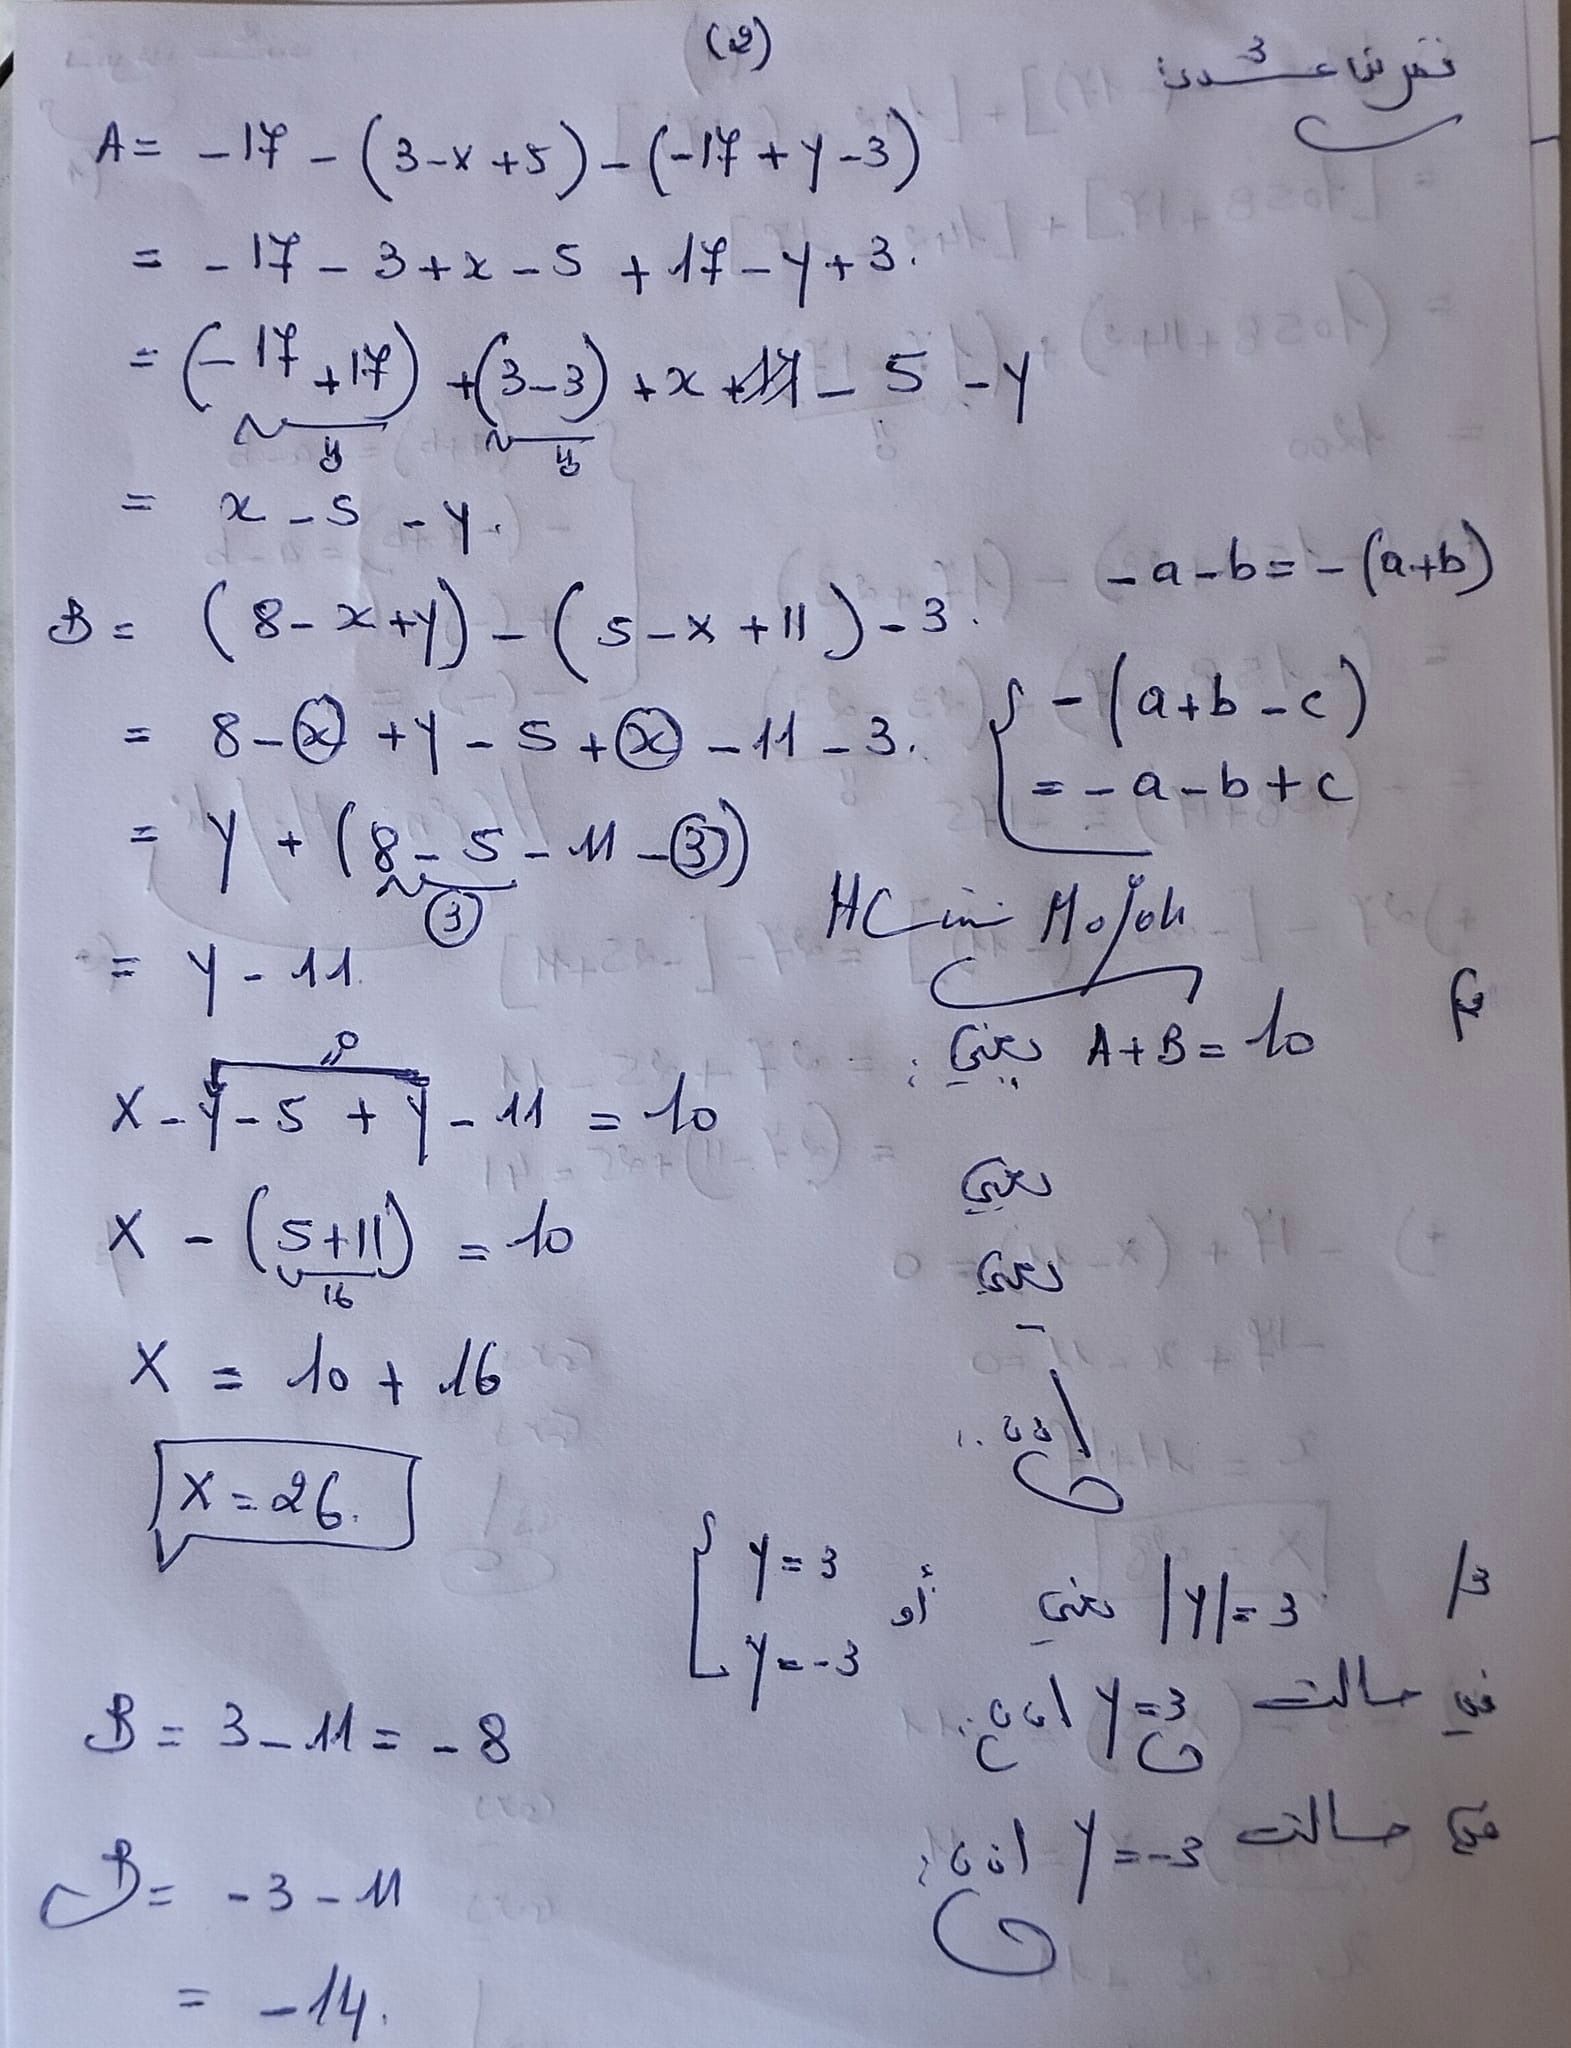 (2)
تمرين عدد 3
A = -17 - (3-x+5) - (-17+y-3)
= -17 - 3 + x - 5 + 17 - y + 3.
= (-17+17) + (3-3) + x - 5 - y
= x - 5 - y.
-a-b = -(a+b)
B = (8-x+y) - (5-x+11) - 3.
= 8 - x + y - 5 + x - 11 - 3.
{ -(a+b-c)
= -a-b+c
= y + (8 - 5 - 11 - 3)
3
= y - 11
A+B = 10 يعني:
0
x - y - 5 + y - 11 = 10
يعني
x - (5+11) = 10
16
يعني
x = 10 + 16
إذن:
x = 26.
3/ |y| = 3 يعني y = 3 أو y = -3
في حالة y = 3 اذن:
B = 3 - 11 = -8
في حالة y = -3 اذن:
B = -3 - 11
= -14.